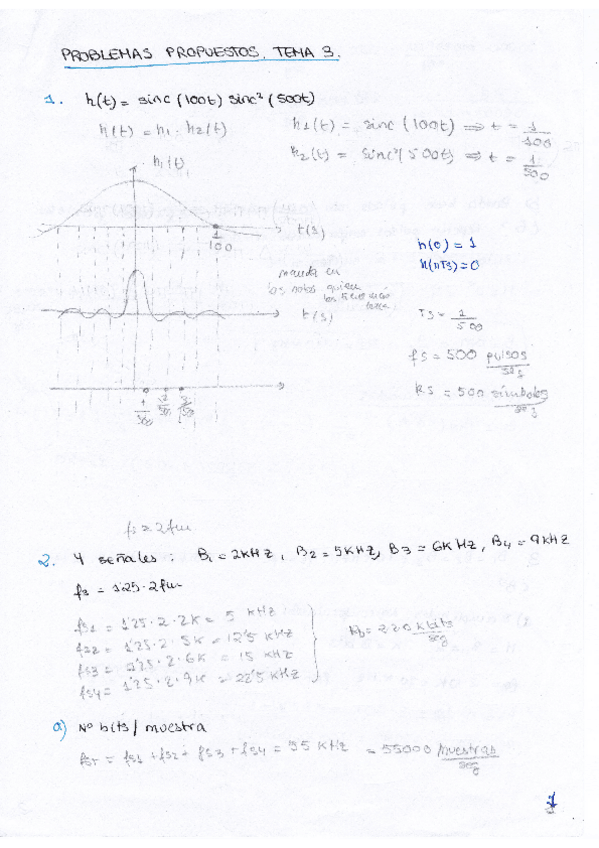 PROBLEMAS PROPUESTOS. TEMA 3.
1. h(t) = sinc(100t) sinc²(500t)
h(t) = h1 · h2(t)
h1(t) = sinc(100t) => t = 1/100
h2(t) = sinc²(500t) => t = 1/500
h1(t)
t(s)
1/100
h(0) = 1
h(nTs) = 0
manda en
los notos quien
t(s)
Ts = 1/500
fs = 500 pulsos/seg
Rs = 500 símbolos/seg
1/500 2/500 3/500
fs = 2fm
2. 4 señales: B1 = 2kHz, B2 = 5kHz, B3 = 6kHz, B4 = 9kHz
fs = 1'25·2fm
fs1 = 1'25·2·2k = 5 kHz
fs2 = 1'25·2·5k = 12'5 kHz
fs3 = 1'25·2·6k = 15 kHz
fs4 = 1'25·2·9k = 22'5 kHz
Rb = 220 kbits/seg
a) Nº bits / muestra
fsT = fs1 + fs2 + fs3 + fs4 = 55 kHz = 55000 muestras/seg
1